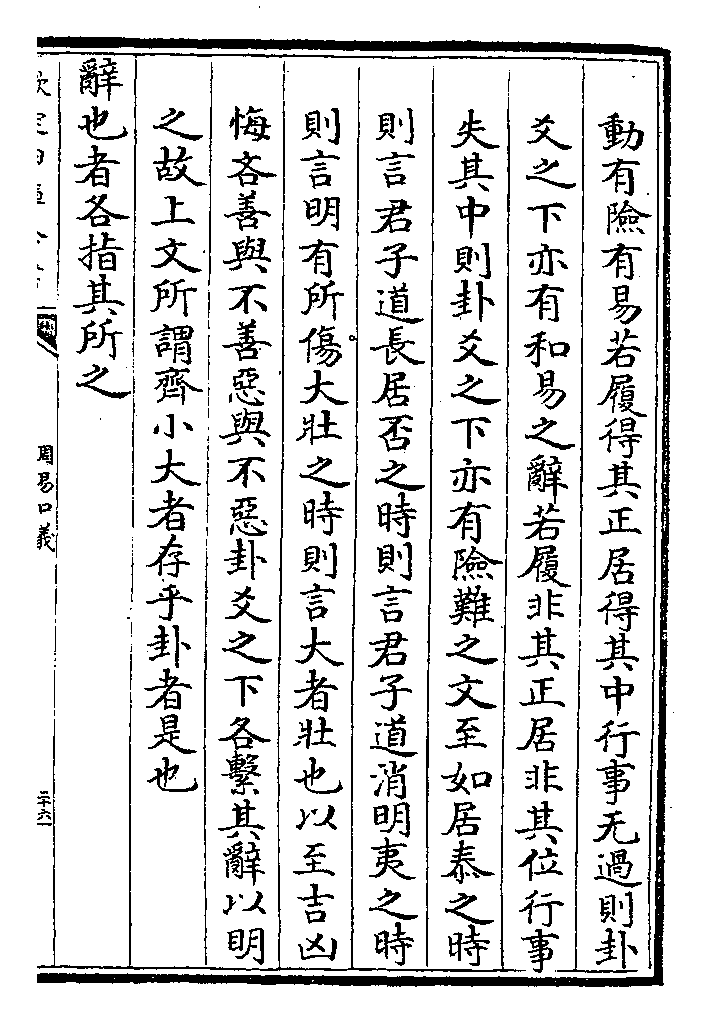 動有險有易若履得其正居得其中行事无過則卦
爻之下亦有和易之辭若履非其正居非其位行事
失其中則卦爻之下亦有險難之文至如居泰之時
則言君子道長居否之時則言君子道消明夷之時
則言明有所傷大壯之時則言大者壯也以至吉凶
悔吝善與不善惡與不惡卦爻之下各繫其辭以明
之故上文所謂齊小大者存乎卦者是也
辭也者各指其所之
周易口義
二十六